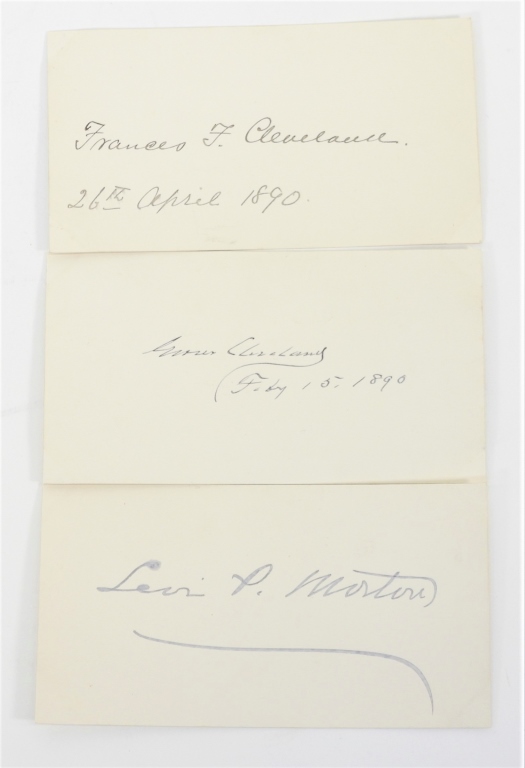 Frances F. Cleveland.
26th April 1890.
Grover Cleveland
Feby 15. 1890
Levi P. Morton